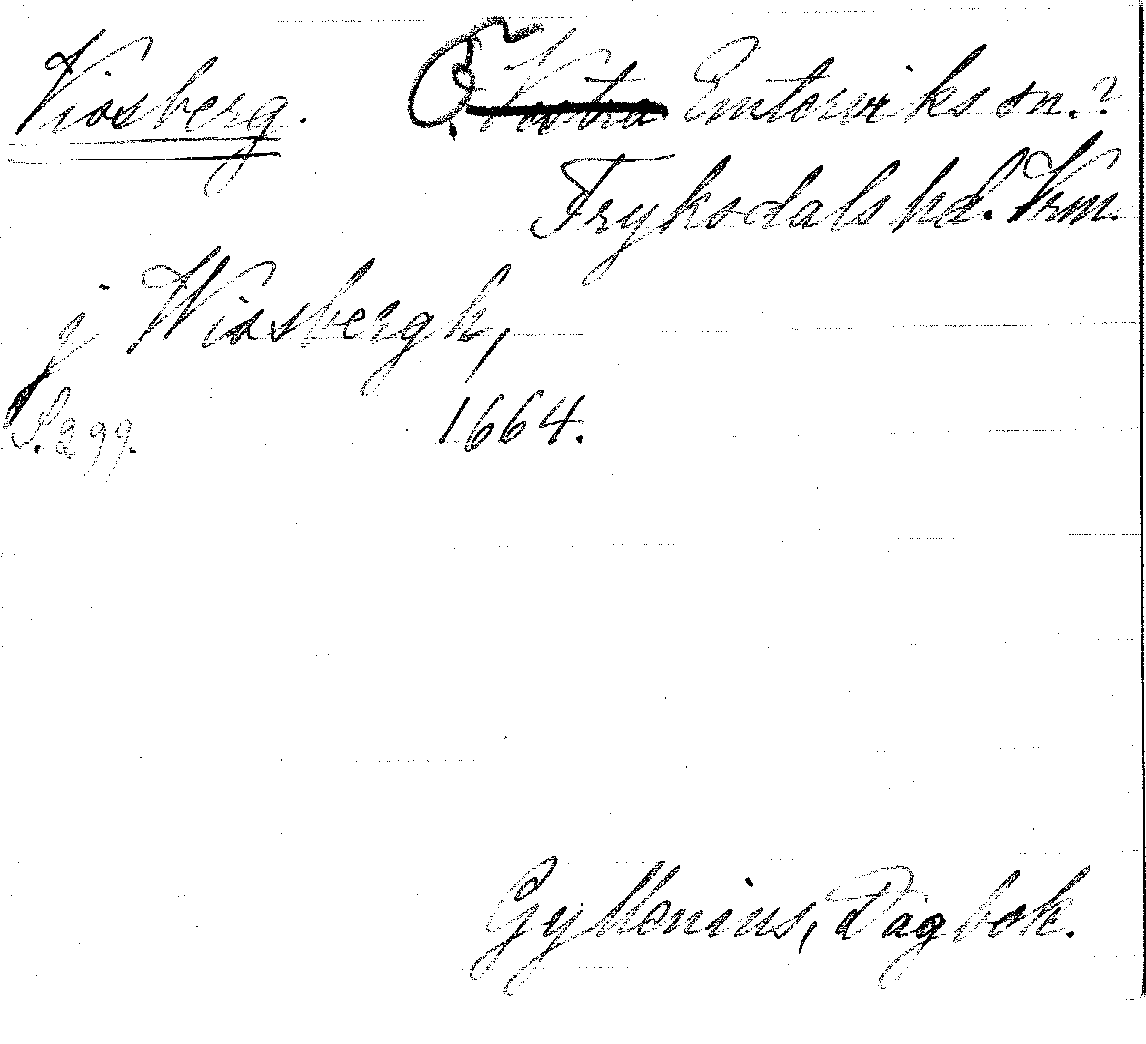 Vissberg. Ö. Emterviks sn.?
Fryksdals hd. Vrm.
j Wissbergh,
S. 299. 1664.
Gyllenius, Dagbok.